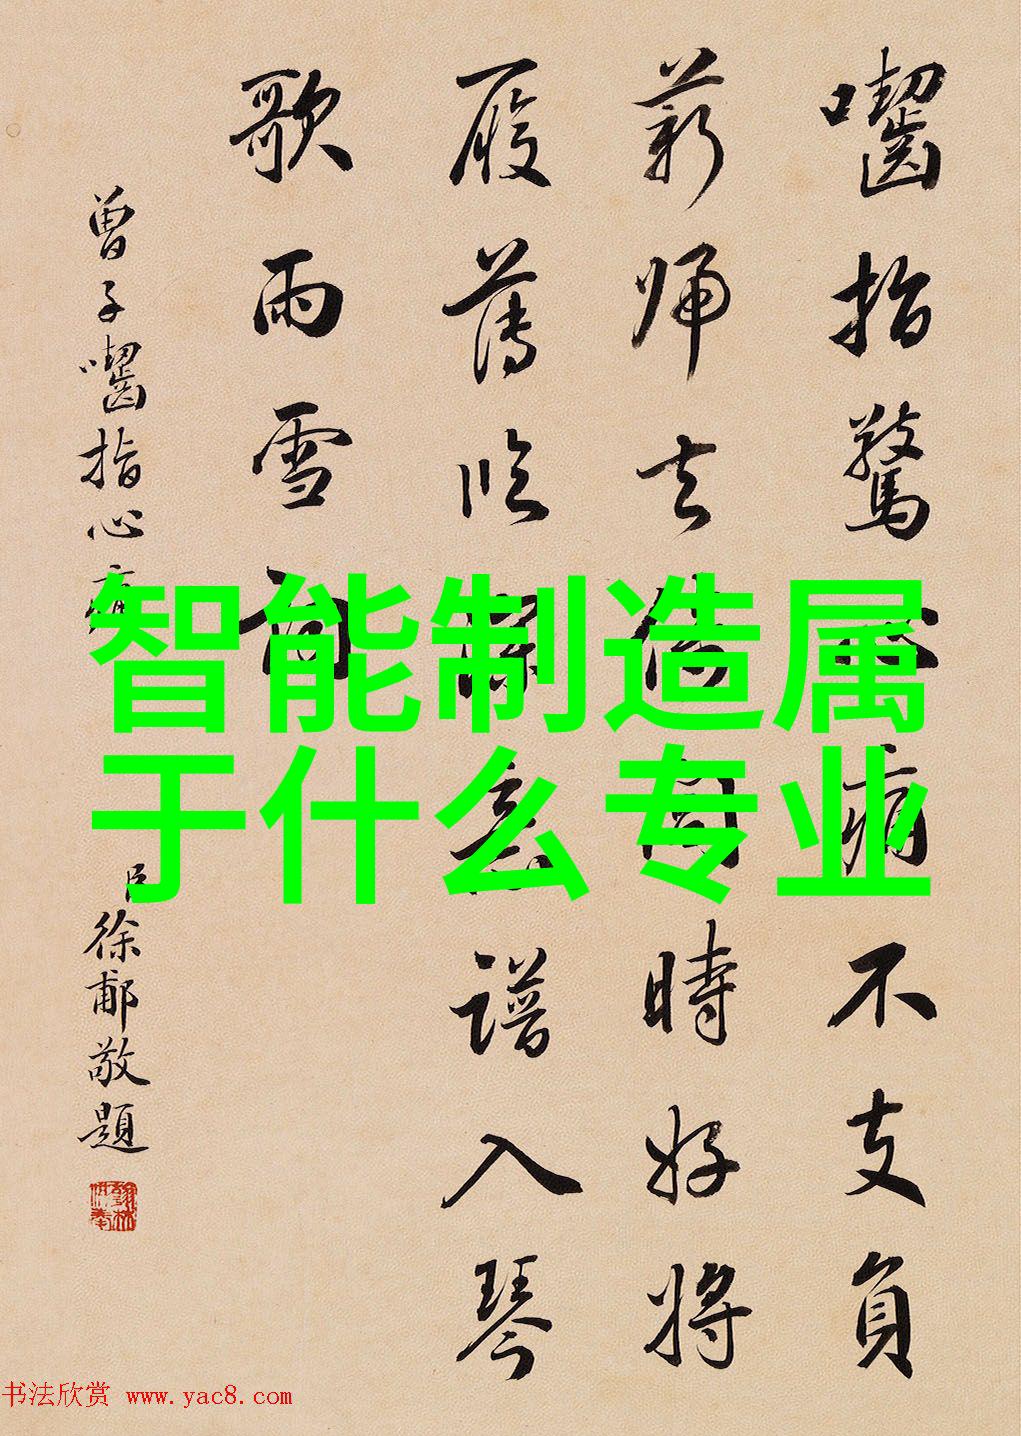 囓指驚心痛不支負
薪歸去時好將
履薄臨深意譜入琴
歌雨雪
曾子囓指心痛
臣徐郙敬題
智能制造属
于什么专业
书法欣赏 www.yac8.com